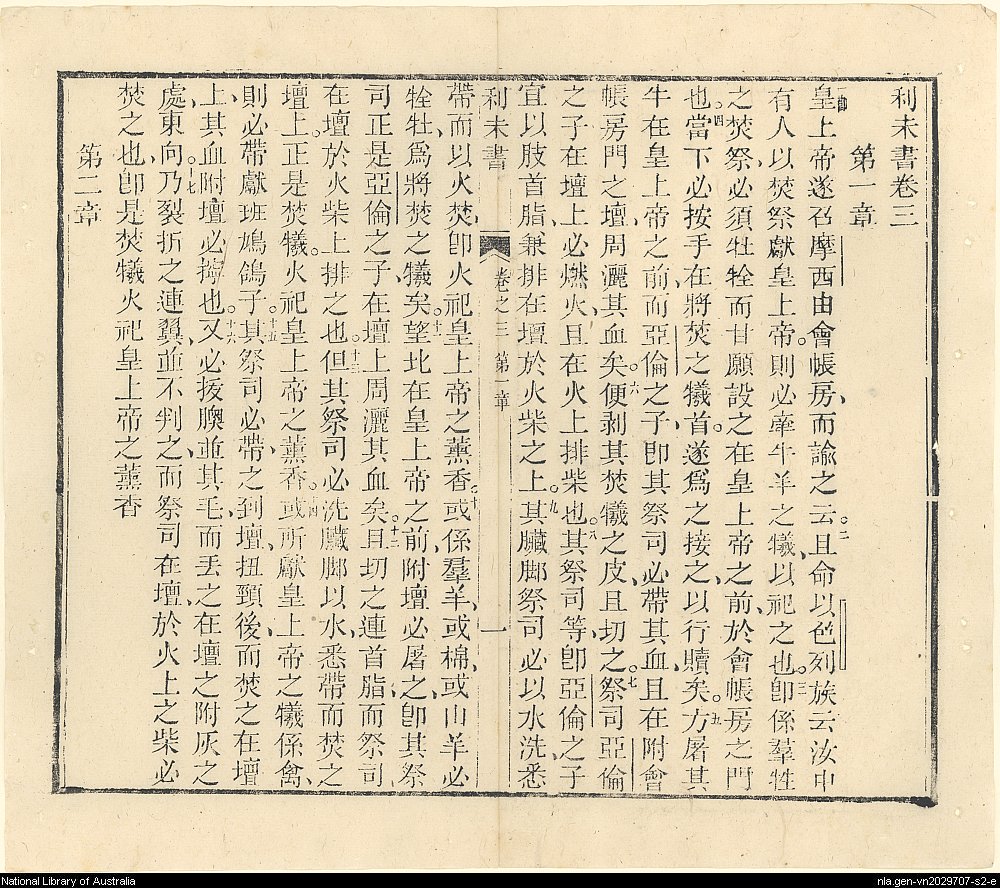 利未書卷三
第一章
皇上帝遂召摩西由會帳房、而諭之云。二且命以色列族云汝中
有人、以焚祭獻皇上帝。則必牽牛羊之犧、以祀之也。三即係羣牲
之焚祭、必須牡牷而甘願設之在皇上帝之前、於會帳房之門
也。四當下必按手在將焚之犧首。遂爲之接之、以行贖矣。五方屠其
牛在皇上帝之前、而亞倫之子、即其祭司必帶其血、且在附會
帳房門之壇、周灑其血矣。六便剥其焚犧之皮、且切之。七祭司亞倫
之子在壇上、必燃火、且在火上排柴也。八其祭司等、即亞倫之子
宜以肢首脂、兼排在壇於火柴之上。九其臟脚祭司必以水洗、悉
利未書 卷之三 第一章 一
帶而以火焚、即火祀皇上帝之薰香。十或係羣羊、或棉、或山羊必
牷牡、爲將焚之犧矣。十一望北在皇上帝之前、附壇必屠之、即其祭
司正是亞倫之子在壇上周灑其血矣。十二且切之連首脂而祭司
在壇於火柴上排之也。十三但其祭司必洗臟脚以水、悉帶而焚之
壇上。正是焚犧。火祀皇上帝之薰香。十四或所獻皇上帝之犧係禽、
則必帶獻班鳩鴿子。十五其祭司必帶之、到壇扭頸後、而焚之在壇
上、其血附壇必擠也。十六又必拔膆並其毛、而丟之在壇之附灰之
處、東向。十七乃裂折之連翼、並不判之、而祭司在壇、於火上之柴必
焚之也、即是焚犧火祀皇上帝之薰香
第二章
National Library of Australia
nla.gen-vn2029707-s2-e